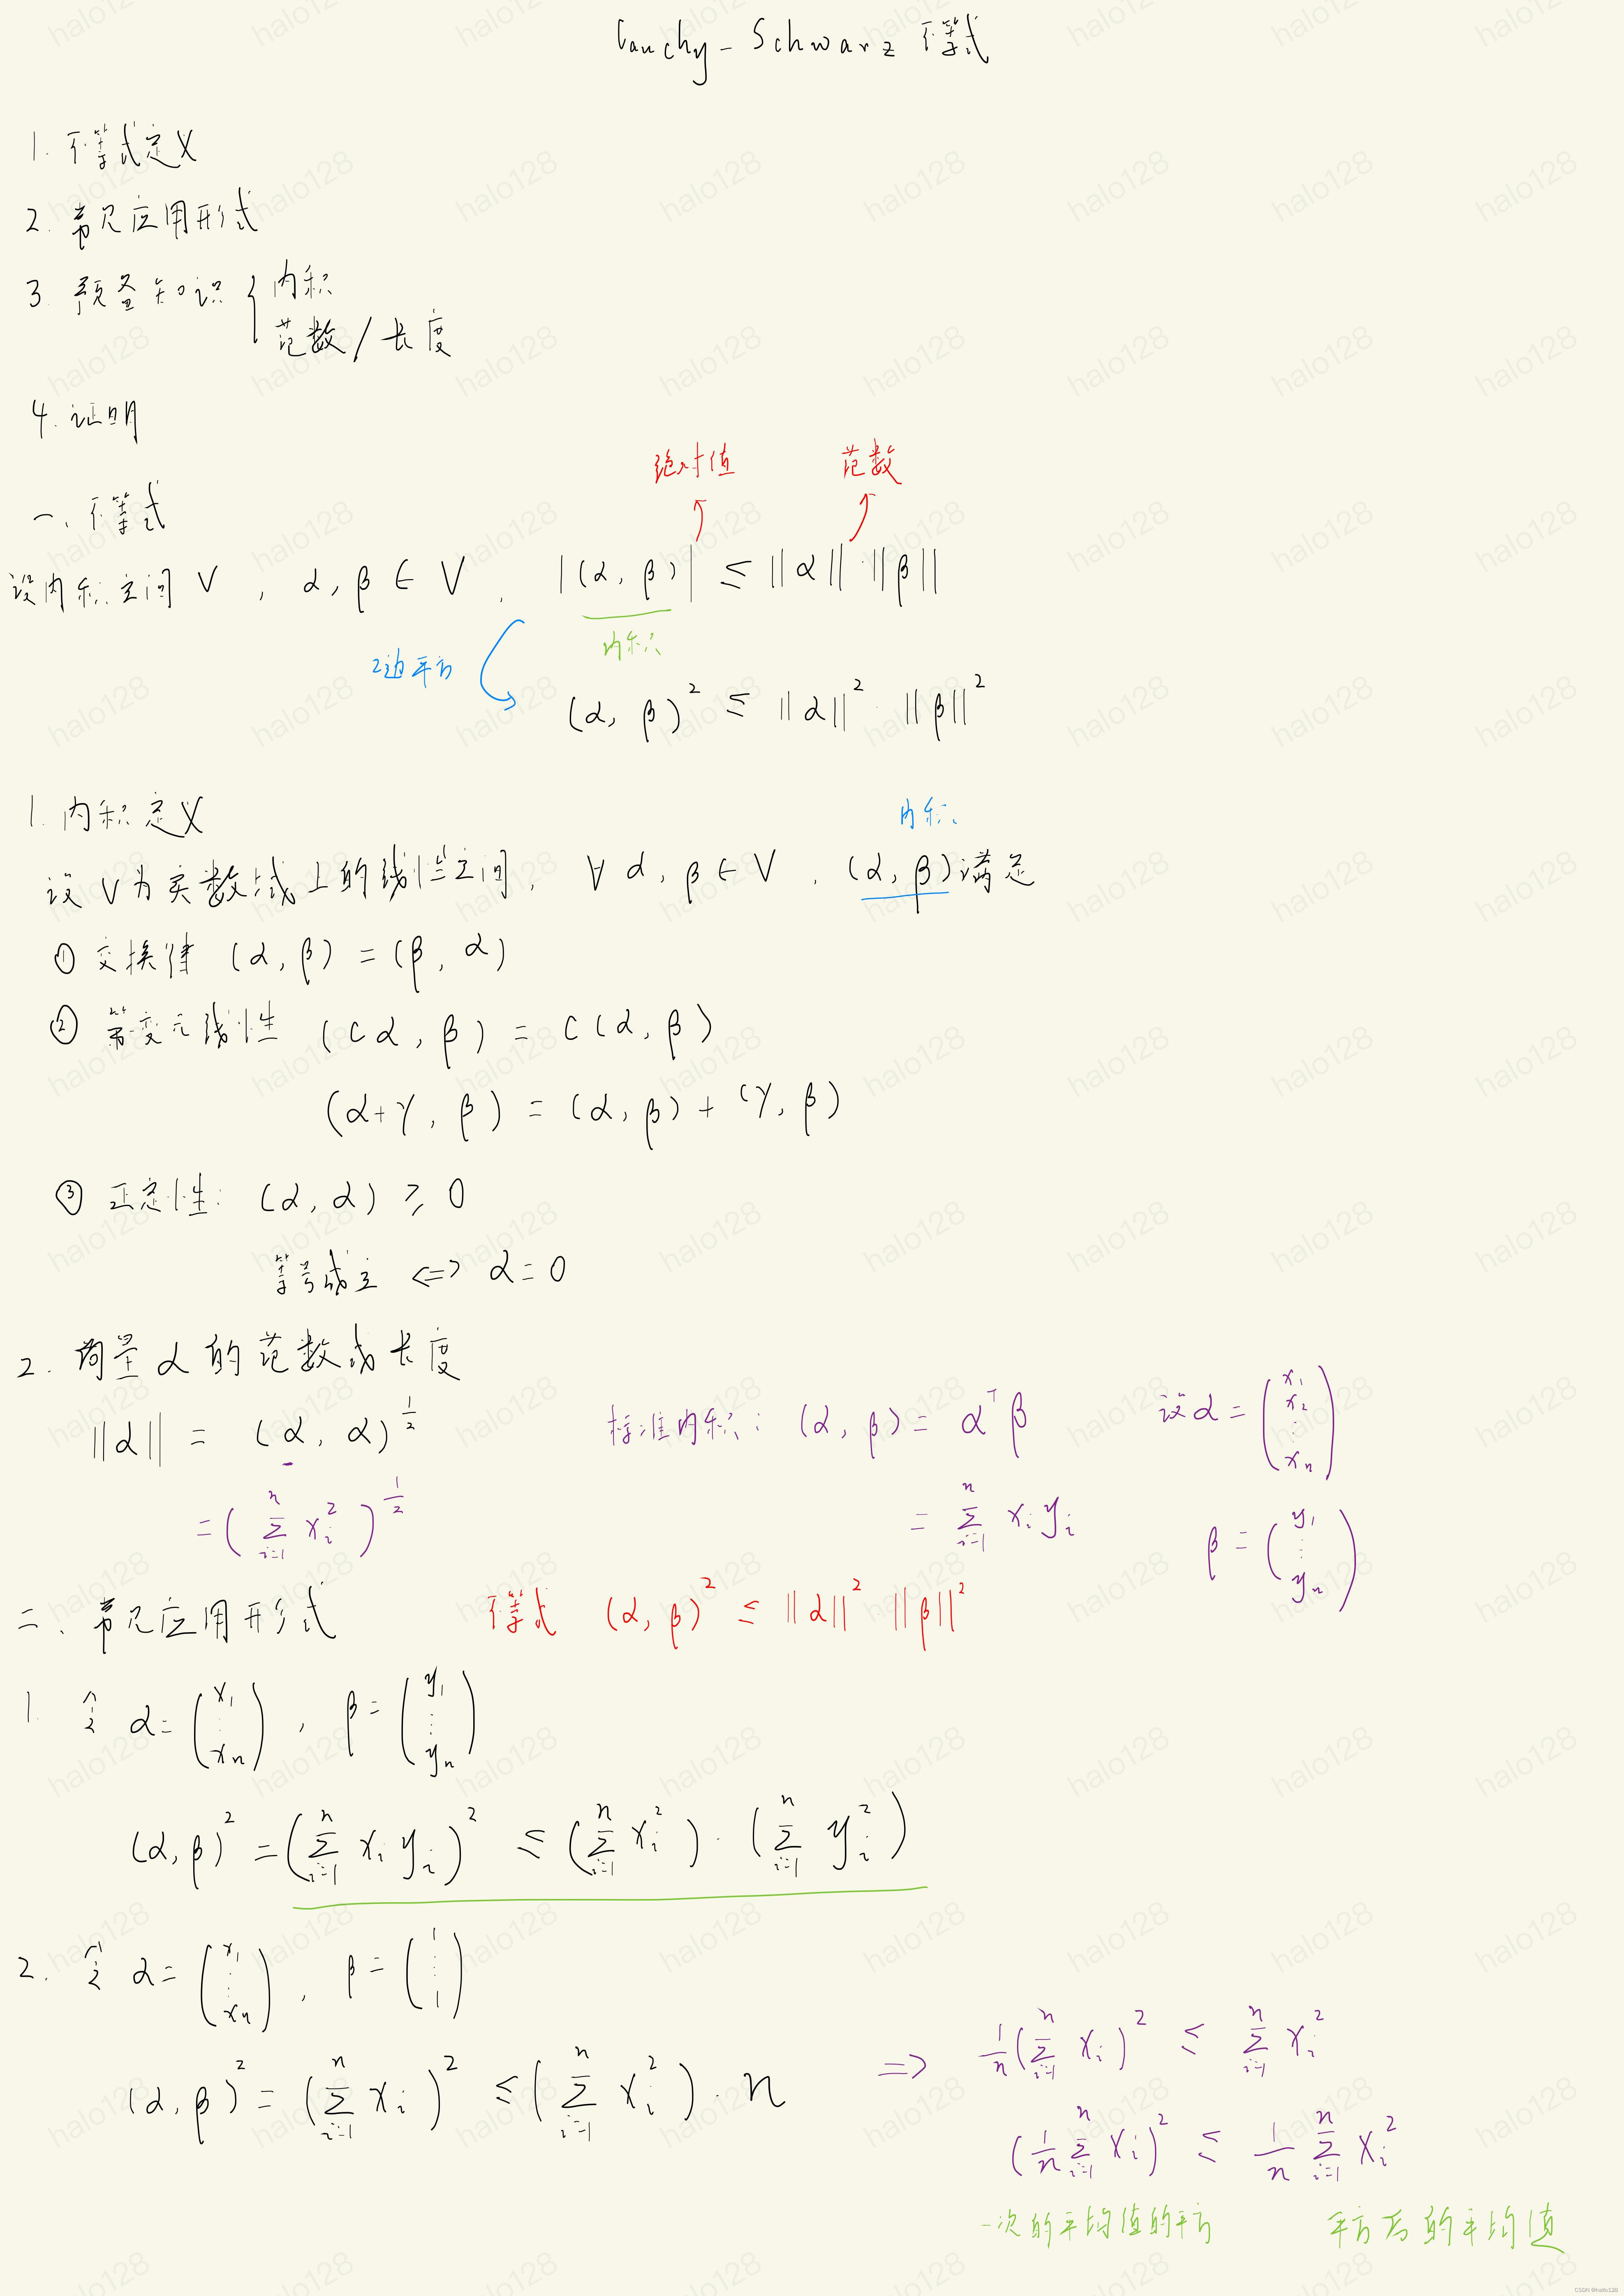 Cauchy-Schwarz 不等式
1. 不等式定义
2. 常见应用形式
3. 预备知识 { 内积
范数/长度
4. 证明
绝对值 范数
一、不等式
设内积空间 V , α, β ∈ V , |(α, β)| ≤ ||α||·||β||
内积
2边平方
(α, β)² ≤ ||α||²·||β||²
1. 内积定义
内积
设 V为实数域上的线性空间, ∀ α, β ∈ V , (α, β)满足
① 交换律 (α, β) = (β, α)
② 第变元线性 (cα, β) = c(α, β)
(α+γ, β) = (α, β) + (γ, β)
③ 正定性: (α, α) ≥ 0
等号成立 <=> α=0
2. 向量α的范数或长度
||α|| = (α, α)^{1/2} 标准内积: (α, β) = α^T β 设α = (x₁ x₂ ⋮ xₙ)
= (∑_{i=1}^{n} x_i²)^{1/2} = ∑_{i=1}^{n} x_i y_i β = (y₁ ⋮ yₙ)
二、常见应用形式 不等式 (α, β)² ≤ ||α||²·||β||²
1. 令 α = (x₁ ⋮ xₙ) , β = (y₁ ⋮ yₙ)
(α, β)² = (∑_{i=1}^{n} x_i y_i)² ≤ (∑_{i=1}^{n} x_i²)·(∑_{i=1}^{n} y_i²)
2. 令 α = (x₁ ⋮ xₙ) , β = (1 ⋮ 1)
(α, β)² = (∑_{i=1}^{n} x_i)² ≤ (∑_{i=1}^{n} x_i²)·n => 1/n(∑_{i=1}^{n} x_i)² ≤ ∑_{i=1}^{n} x_i²
(1/n ∑_{i=1}^{n} x_i)² ≤ 1/n ∑_{i=1}^{n} x_i²
一次的平均值的平方 平方后的平均值
halo128
CSDN @halo128